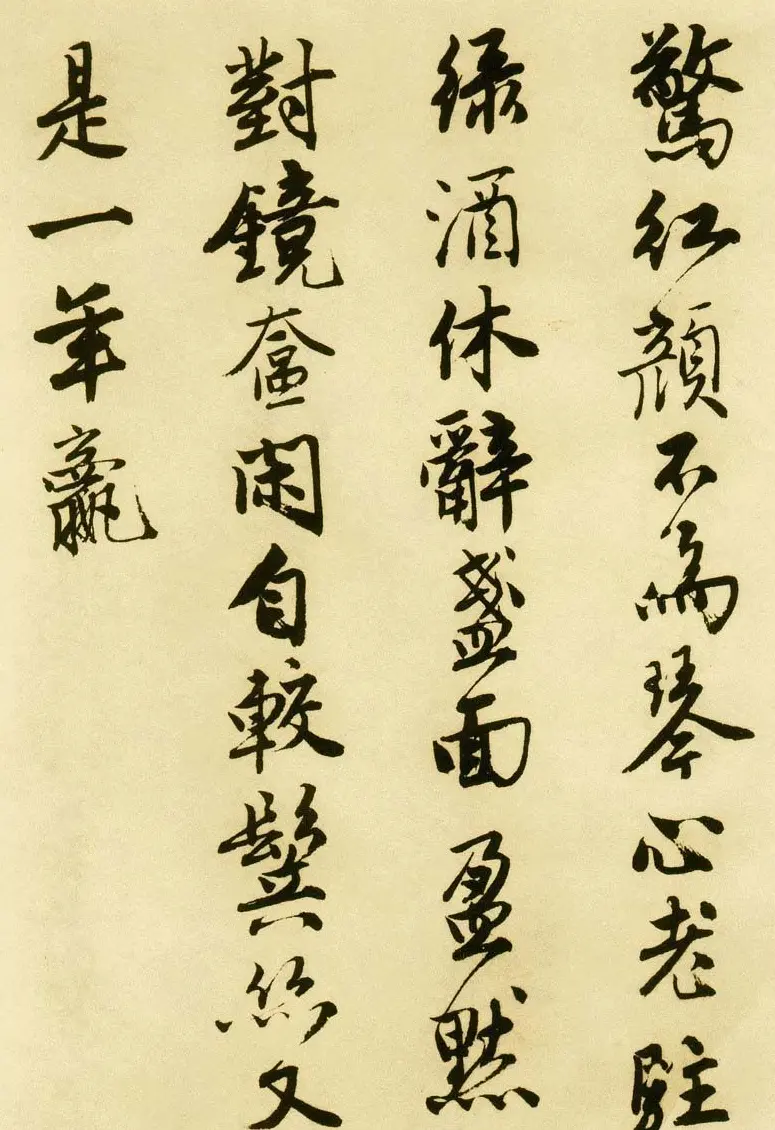 驚紅顔不為琴心老駐
緑酒休辭盞面盈默
對鏡奩閑自較鬂絲又
是一年贏